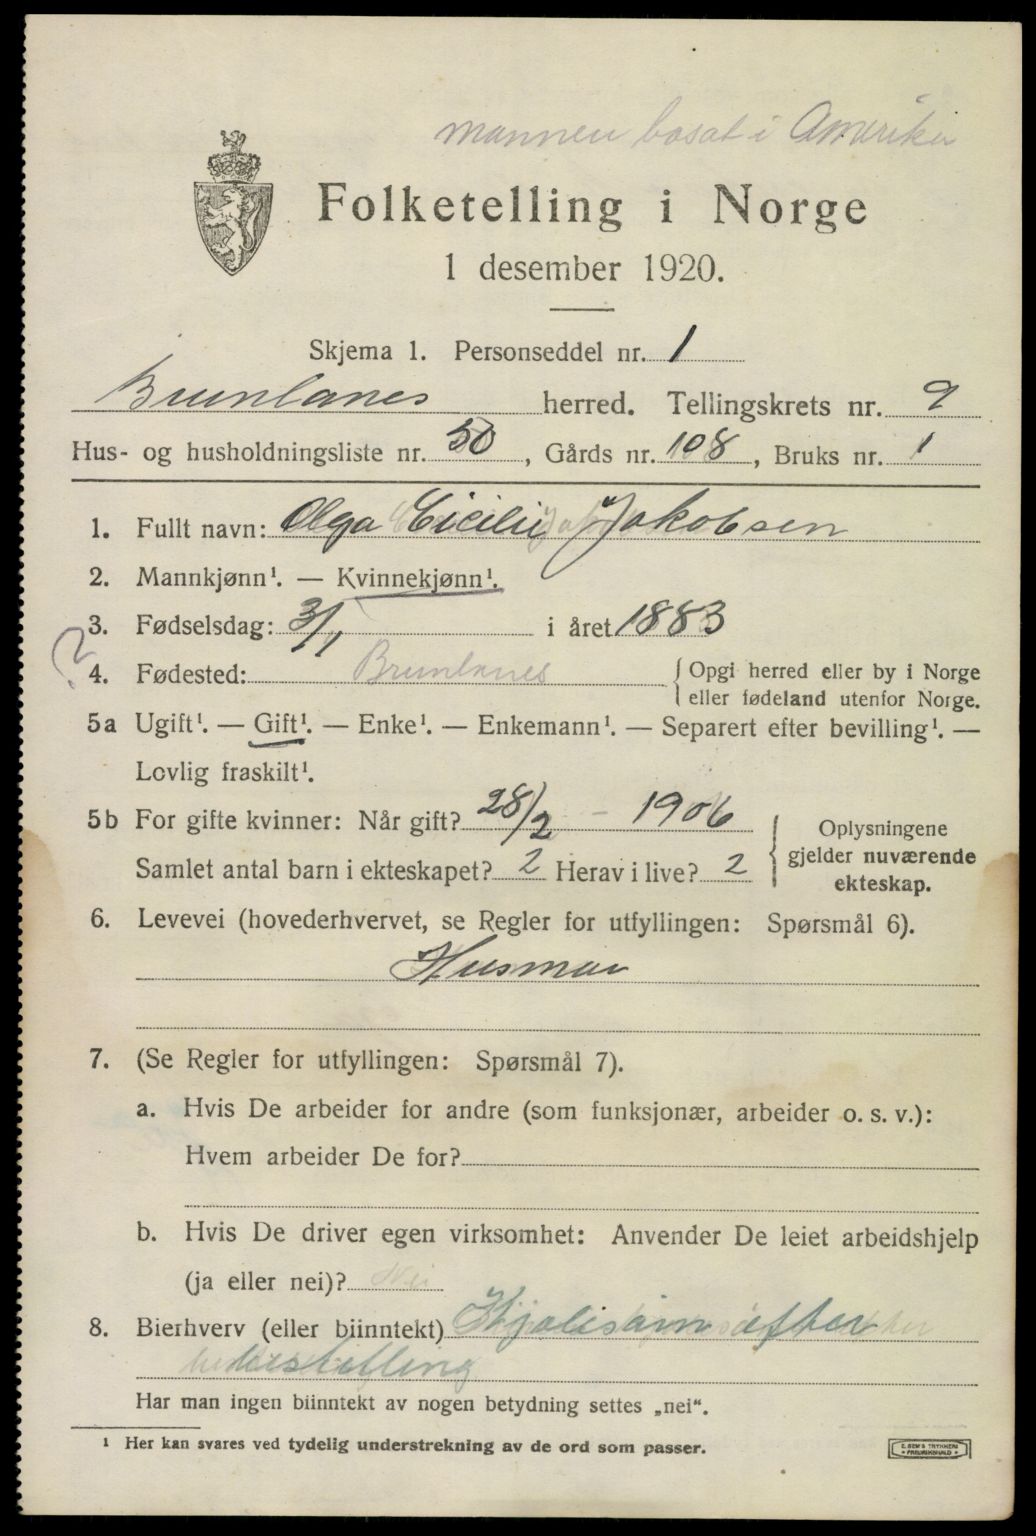 mannen bosat i Amerika
Folketelling i Norge
1 desember 1920.
Skjema 1. Personseddel nr. 1
Brunlanes herred. Tellingskrets nr. 9
Hus- og husholdningsliste nr. 50, Gårds nr. 108, Bruks nr. 1
1. Fullt navn: Olga Cicilie Jakobsen
2. Mannkjønn¹. — Kvinnekjønn¹.
3. Fødselsdag: 3/1 i året 1883
?
4. Fødested: Brunlanes { Opgi herred eller by i Norge
eller fødeland utenfor Norge.
5a Ugift¹. — Gift¹. — Enke¹. — Enkemann¹. — Separert efter bevilling¹. —
Lovlig fraskilt¹.
5b For gifte kvinner: Når gift? 28/2 - 1906
Samlet antal barn i ekteskapet? 2 Herav i live? 2
Oplysningene
gjelder nuværende
ekteskap.
6. Levevei (hovederhvervet, se Regler for utfyllingen: Spørsmål 6).
Husmor
7. (Se Regler for utfyllingen: Spørsmål 7).
a. Hvis De arbeider for andre (som funksjonær, arbeider o. s. v.):
Hvem arbeider De for?
b. Hvis De driver egen virksomhet: Anvender De leiet arbeidshjelp
(ja eller nei)? Nei
8. Bierhverv (eller biinntekt) Kjolesøm efter
bestilling
Har man ingen biinntekt av nogen betydning settes „nei“.
¹ Her kan svares ved tydelig understrekning av de ord som passer.
E. SEM'S TRYKKERI
FREDRIKSHALD